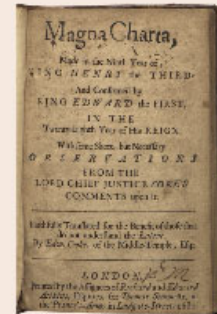 Magna Charta,
Made in the Ninth Year of
KING HENRY the THIRD,
And Confirmed by
KING EDWARD the FIRST,
IN THE
Twenty-eighth Year of His REIGN.
With some Short, but Necessary
OBSERVATIONS
FROM THE
LORD CHIEF JUSTICE COKE'S
COMMENTS upon it.
Faithfully Translated for the Benefit of those that
do not understand the Latine.
By Edw. Cooke, of the Middle-Temple, Esq;
LONDON,
Printed by the Assignes of Richard and Edward
Atkins, Esquires, for Thomas Simmons, at
the Princes Armes in Ludgate-Street.